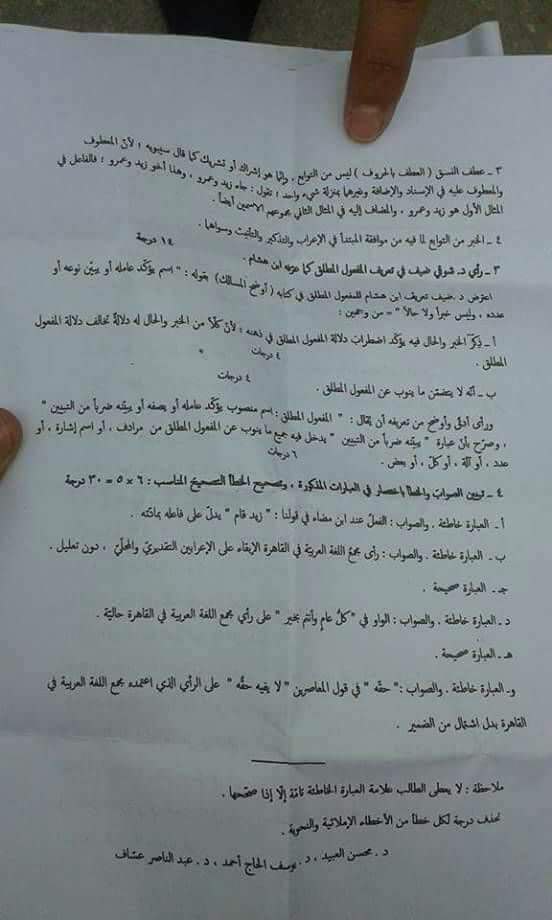 ٣ ـ عطف النسق ( العطف بالحروف ) ليس من التوابع ، وإنما هو إشراك أو تشريك كما قال سيبويه ؛ لأنّ المعطوف
والمعطوف عليه في الإسناد والإضافة وغيرهما بمنزلة شيء واحد ؛ تقول : جاء زيد وعمرو ، وهذا أخو زيد وعمرو ؛ فالفاعل في
المثال الأول هو زيد وعمرو ، والمضاف إليه في المثال الثاني مجموعهم الاسمين أيضاً .
٤ ـ الخبر من التوابع لما فيه من موافقة المبتدأ في الإعراب والتذكير والتأنيث وسواهما .
٣ ـ رأي د. شوقي ضيف في تعريف المفعول المطلق كما عرّفه ابن هشام . ١٤ درجة
اعترض د .ضيف تعريفَ ابن هشام للمفعول المطلق في كتابه ( أوضح المسالك) بقوله : " اسم يؤكّد عامله أو يبيّن نوعه أو
عدده ، وليس خبراً ولا حالاً " – من وجهين :
أ ـ ذِكْرُ الخبر والحال فيه يؤكّد اضطرابَ دلالة المفعول المطلق في ذهنه ؛ لأنّ كلّاً من الخبر والحال له دلالةٌ تخالف دلالة المفعول
المطلق . ٤ درجات
ب ـ أنّه لا يتضمّن ما ينوب عن المفعول المطلق . ٤ درجات
ورأى أدقَّ وأوضح من تعريفه أن يُقال : " المفعول المطلق : اسم منصوب يؤكّد عامله أو يصفه أو يبيّنه ضرباً من التبيين "
، وصرّح بأنّ عبارة " يبيّنه ضرباً من التبيين " يدخل فيه جميع ما ينوب عن المفعول المطلق من مرادف ، أو اسم إشارة ، أو
عدد ، أو آلة ، أو كلّ ، أو بعض . ٦ درجات
٤ ـ تبيين الصواب والخطأ باختصار في العبارات المذكورة ، وتصحيح الخطأ التصحيحَ المناسب : ٦ × ٥ = ٣٠ درجة
أ ـ العبارة خاطئة . والصواب : الفعلُ عند ابن مضاء في قولنا : " زيد قام " يدلّ على فاعله بمادّته .
ب ـ العبارة خاطئة . والصواب : رأى مجمعُ اللغة العربيّة في القاهرة الإبقاء على الإعرابين التقديريّ والمحلّيّ ، دون تعليل .
جـ ـ العبارة صحيحة .
د ـ العبارة خاطئة . والصواب : الواو في "كلُّ عامٍ وأنتم بخير " على رأي مجمع اللغة العربية في القاهرة حاليّة .
هـ ـ العبارة صحيحة .
و ـ العبارة خاطئة . والصواب :" حقّه " في قول المعاصرين "لا يفيه حقُّه " على الرأي الذي اعتمده مجمع اللغة العربية في
القاهرة بدل اشتمال من الضمير .
ملاحظة : لا يعطى الطالب علامة العبارة الخاطئة تامّة إلّا إذا صحّحها .
تحذف درجة لكل خطأ من الأخطاء الإملائية والنحوية .
د . محسن العبيد ، د . يوسف الحاج أحمد ، د . عبد الناصر عشاف